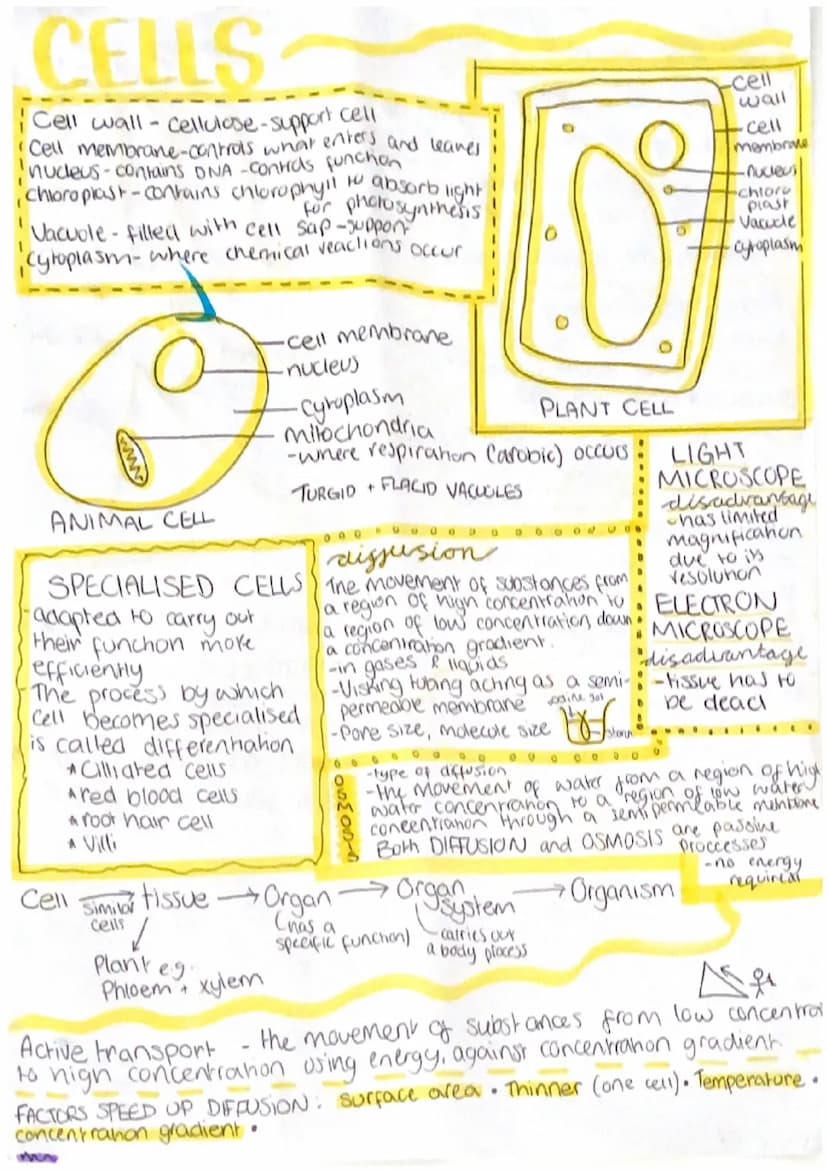 CELLS
Cell wall - cellulose - support cell
Cell membrane - controls what enters and leaves
nucleus - contains DNA - controls function
chloroplast - contains chlorophyll to absorb light
for photosynthesis
Vacuole - filled with cell sap - support
Cytoplasm - where chemical reactions occur
cell
wall
cell
membrane
nucleus
chloro
plast
Vacuole
cytoplasm
PLANT CELL
cell membrane
nucleus
cytoplasm
mitochondria
- where respiration (arobic) occurs
TURGID + FLACID VACUOLES
ANIMAL CELL
LIGHT
MICROSCOPE
disadvantage
- has limited
magnification
due to its
resolution
ELECTRON
MICROSCOPE
disadvantage
- tissue has to
be dead
SPECIALISED CELLS
- adapted to carry out
their function more
efficiently
- The process by which
cell becomes specialised
is called differentiation
* Cilliated cells
* red blood cells
* root hair cell
* Villi
diffusion
The movement of substances from
a region of high concentration to
a region of low concentration down
a concentration gradient.
- in gases & liquids
- Visking tubing acting as a semi-
permeable membrane
- Pore size, molecule size
iodine sol
starch
OSMOSIS
- type of diffusion
- the movement of water from a region of high
water concentration to a region of low water
concentration through a semipermeable membrane
Both DIFFUSION and OSMOSIS are passive
proccesses
- no energy
required
Cell → tissue → Organ → Organ system → Organism
similar
cells
(has a
specific function)
carries out
a body process
Plant e.g.
Phloem + xylem
Active transport - the movement of substances from low concentra
to high concentration using energy, against concentration gradient
FACTORS SPEED UP DIFFUSION: surface area • Thinner (one cell) • Temperature •
concentration gradient •